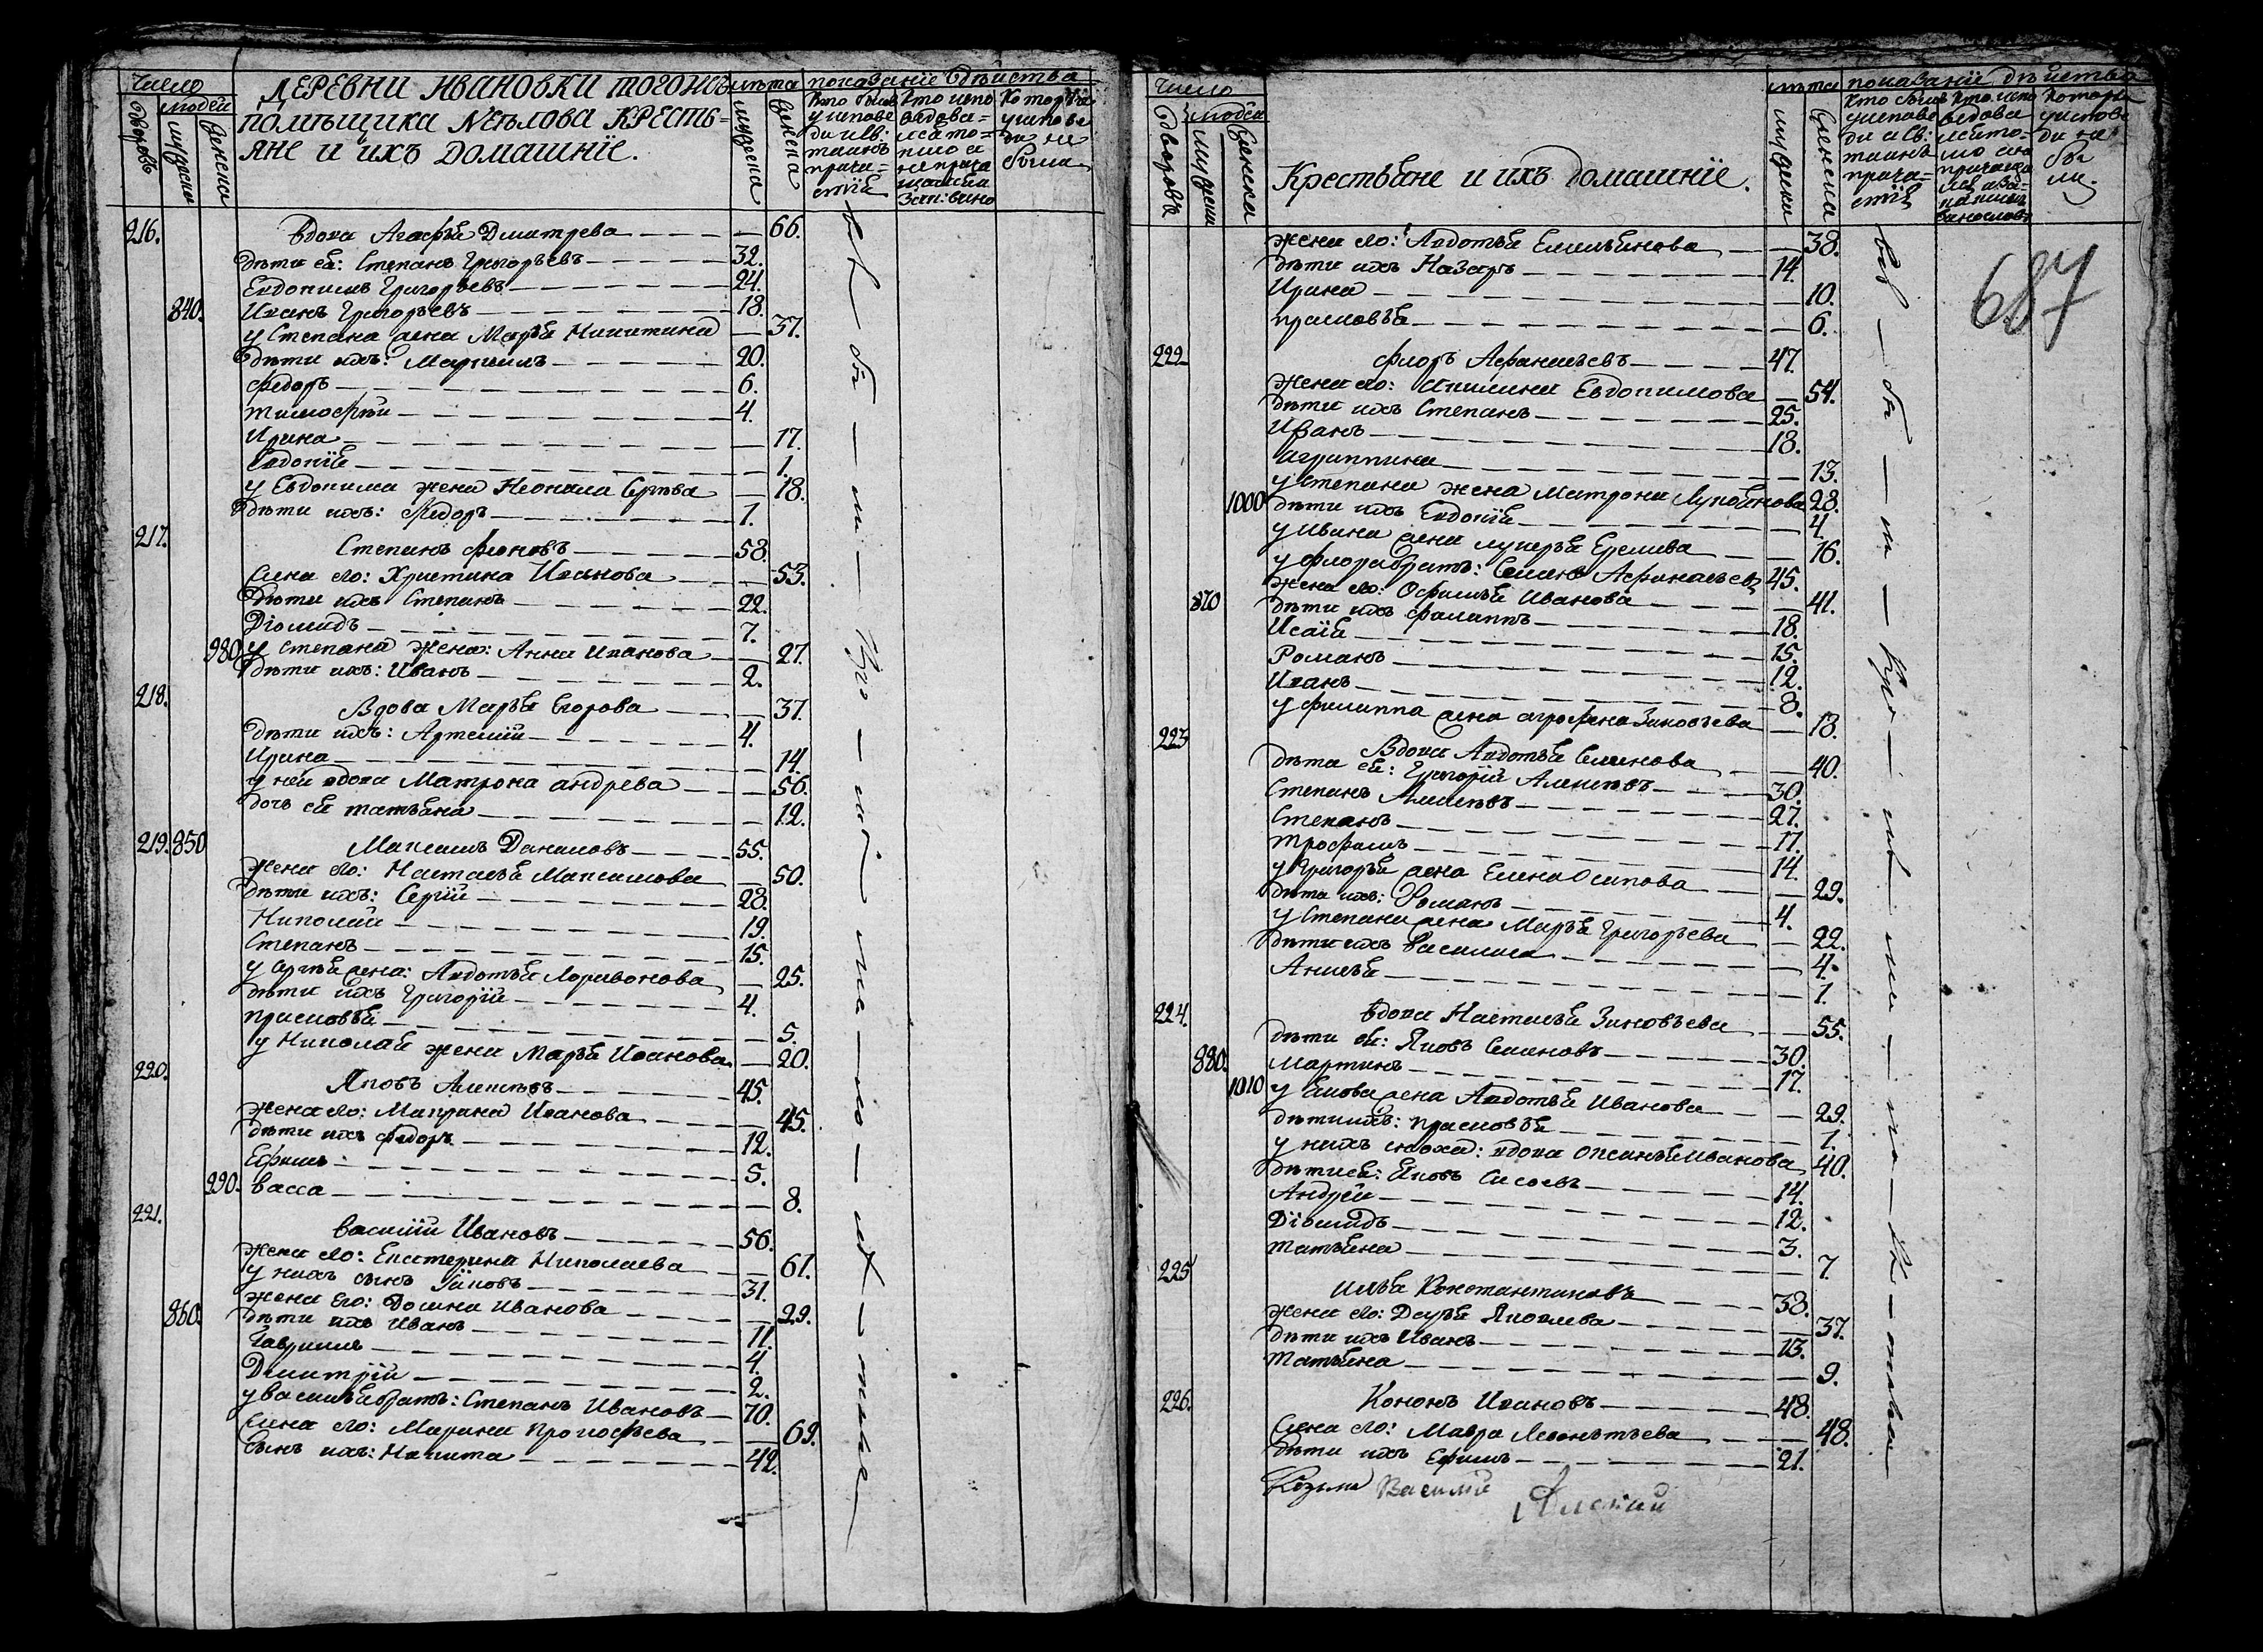 Число
людей
дворовъ
мужеска
женска
ДЕРЕВНИ ИВАНОВКИ ТОГОЖЪ
ПОМѢЩИКА КРЕСТЬ-
ЯНЕ И ИХЪ ДОМАШНІЕ.
лѣта
мужеска
женска
показаніе дѣйства
216. Вдова Агафья Дмитрева 66.
дѣти ея: Степанъ Григорьевъ 32.
Евдокимъ Григорьевъ 24.
840. Иванъ Григорьевъ 18.
у Степана жена Марья Никитина 37.
дѣти ихъ: 20.
Федоръ 6.
Тимофѣй 4.
Ирина 17.
Евдокія 1.
у Евдокима жена Неонила 18.
дѣти ихъ: Федоръ 1.
217. Степанъ 58.
жена его: Христина Иванова 53.
дѣти ихъ Степанъ 22.
Діомидъ 7.
980. у Степана жена: Анна Иванова 27.
дѣти ихъ: Иванъ 2.
218. Вдова Марья Егорова 37.
дѣти ихъ: Артемій 4.
Ирина 14.
у ней вдова Матрона Андрева 56.
дочь ея татьяна 12.
219. 850 Максимъ Даниловъ 55.
жена его: Настасья Максимова 50.
дѣти ихъ: Сергій 28.
Николай 19.
Степанъ 15.
жена: Авдотья 25.
дѣти ихъ Григорій 4.
прасковья 5.
у Николая жена Марья Иванова 20.
220. Яковъ Алексѣевъ 45.
жена его: Иванова 45.
дѣти ихъ федоръ 12.
Ефимъ 5.
990. васса 8.
221. василій Ивановъ 56.
жена его: Екатерина Николаева 61.
у нихъ сынъ Яковъ 31.
жена его: Домна Иванова 29.
860. дѣти ихъ Иванъ 11.
Гавриилъ 4.
Дмитрій 2.
у василья братъ: Степанъ Ивановъ 70.
жена его: Марина Прокофьева 69.
сынъ ихъ: Никита 42.
Число
людей
дворовъ
мужеска
женска
Крестьяне и ихъ домашніе.
лѣта
мужеска
женска
показаніе дѣйства
687
жена его: Авдотья Емельянова 38.
дѣти ихъ Назаръ 14.
Ирина 10.
прасковья 6.
222. Флоръ Афанасьевъ 47.
жена его: Акилина Евдокимова 54.
дѣти ихъ Степанъ 25.
Иванъ 18.
агриппина 13.
у Степана жена Матрона Лукоянова 28.
1000 дѣти ихъ Евдокія 4.
у Ивана жена лукерья Еремѣева 16.
у флора братъ: Семенъ Афанасьевъ 45.
жена его: Офимья Иванова 41.
870 дѣти ихъ филиппъ 18.
Исаія 15.
Романъ 12.
Иванъ 8.
у филиппа жена агрофена Зиновьева 18.
223 Вдова Авдотья Семенова 40.
дѣти ея: Григорій Алексѣевъ 30.
Степанъ Алексѣевъ 27.
Степанъ 17.
трофимъ 14.
у Григорья жена Елена Осипова 29.
дѣти ихъ: Романъ 4.
у Степана жена Марья Григорьева 22.
дѣти ихъ василиса 4.
Анисья 1.
224. Вдова Настасья Зиновьева 55.
дѣти ея: Яковъ Семеновъ 30.
880. Мартинъ 17.
1010 у Якова жена Авдотья Иванова 29.
дѣти ихъ: прасковья 1.
у нихъ сноха: вдова Оксинья Иванова 40.
дѣти ея: Яковъ Сисоевъ 14.
Андрей 12.
Діомидъ 3.
татьяна 7.
225 илья Константиновъ 38.
жена его: Дарья Яковлева 37.
дѣти ихъ Иванъ 13.
татьяна 9.
226. Кононъ Ивановъ 48.
жена его: Мавра Леонтьева 48.
дѣти ихъ Ефимъ 21.
Козьма Василій Алексій